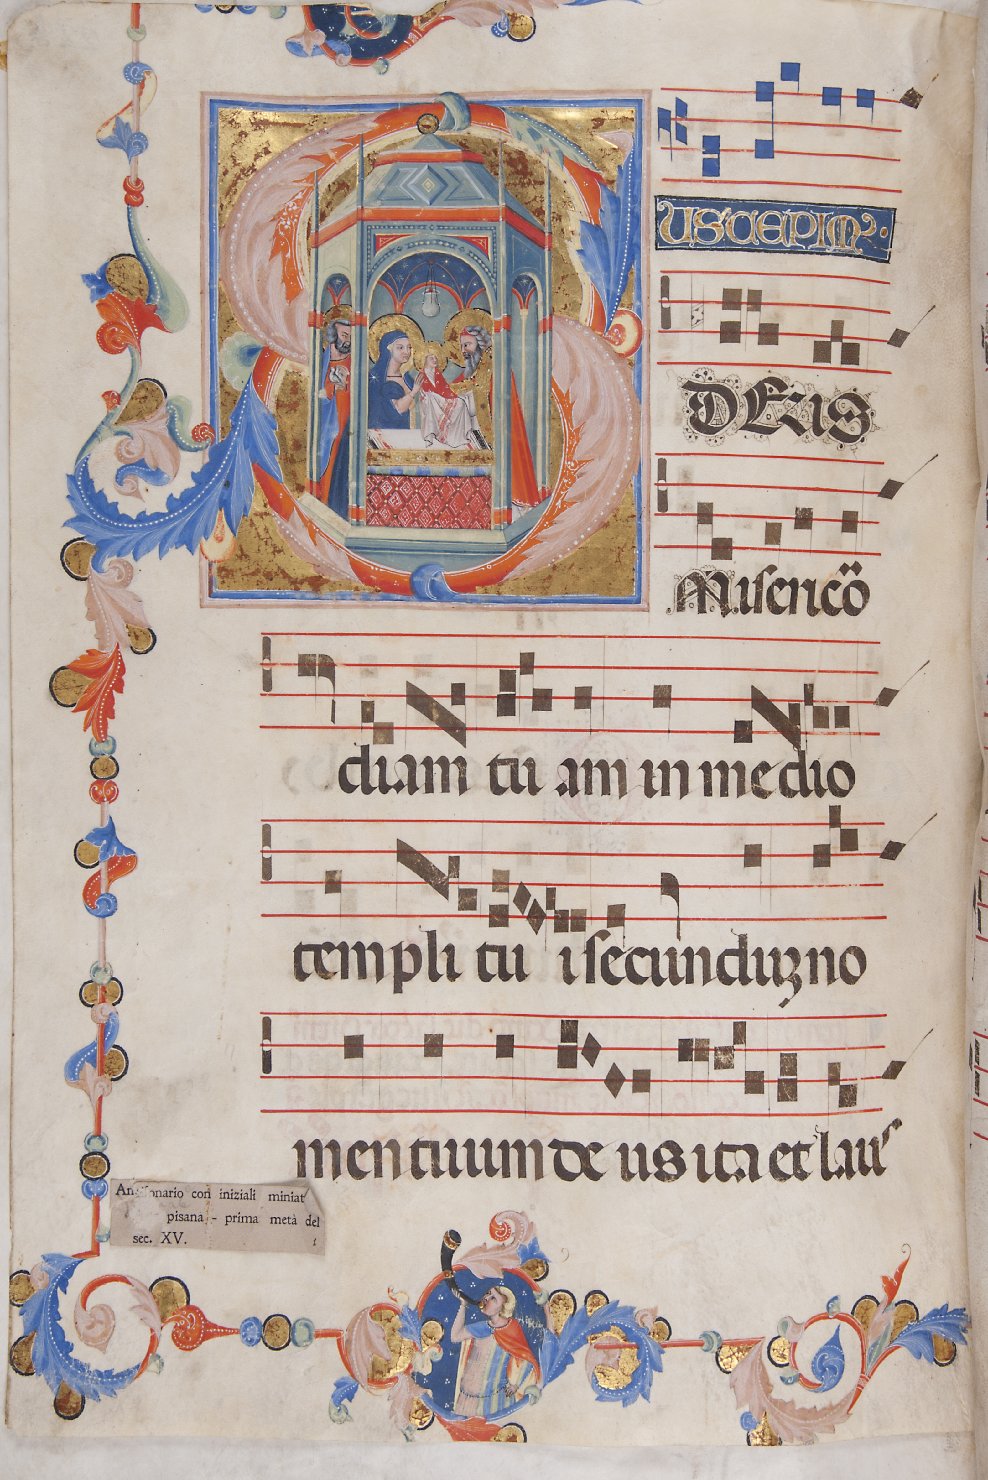 USCEPIM9
DEUS
Misericor
diam tu am in medio
templi tu i secunduz no
men tuum de us ita et laus
Antifonario con iniziali miniat
pisana - prima metà del
sec. XV.